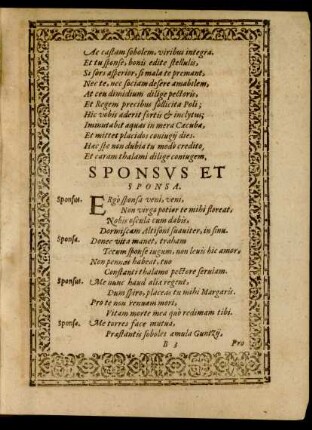 Ac castam sobolem, viribus integra.
Et tu sponse, bonis edite stellulis,
Si sors asperior, si mala te premant,
Nec te, nec sociam desere amabilem,
At ceu dimidium dilige pectoris,
Et Regem precibus sollicita Poli;
Hic vobis aderit fortis & inclytus;
Immutabit aquas in mera Cæcuba,
Et mittet placidos conjugij dies.
Hac spe non dubia tu modò credito,
Et caram thalami dilige coniugem,
SPONSVS ET
SPONSA.
Sponsus. ERgò sponsa veni, veni,
Non virgo potior te mihi floreat,
Nobis oscula cum dabis,
Dormiscam Altisoni suaviter, in sinu.
Sponsa. Donec vita manet, traham
Tecum sponse iugum, non levis hic amor,
Non pennas habeat, tuo
Constanti thalamo pectore serviam.
Sponsus. Me nunc haud alia regent,
Dum spiro, placeas tu mihi Margaris.
Pro te non renuam mori,
Vitam morte mea quò redimam tibi.
Sponsa. Me torres face mutua,
Præstantis soboles æmula Guntzij.
B 3 Pro